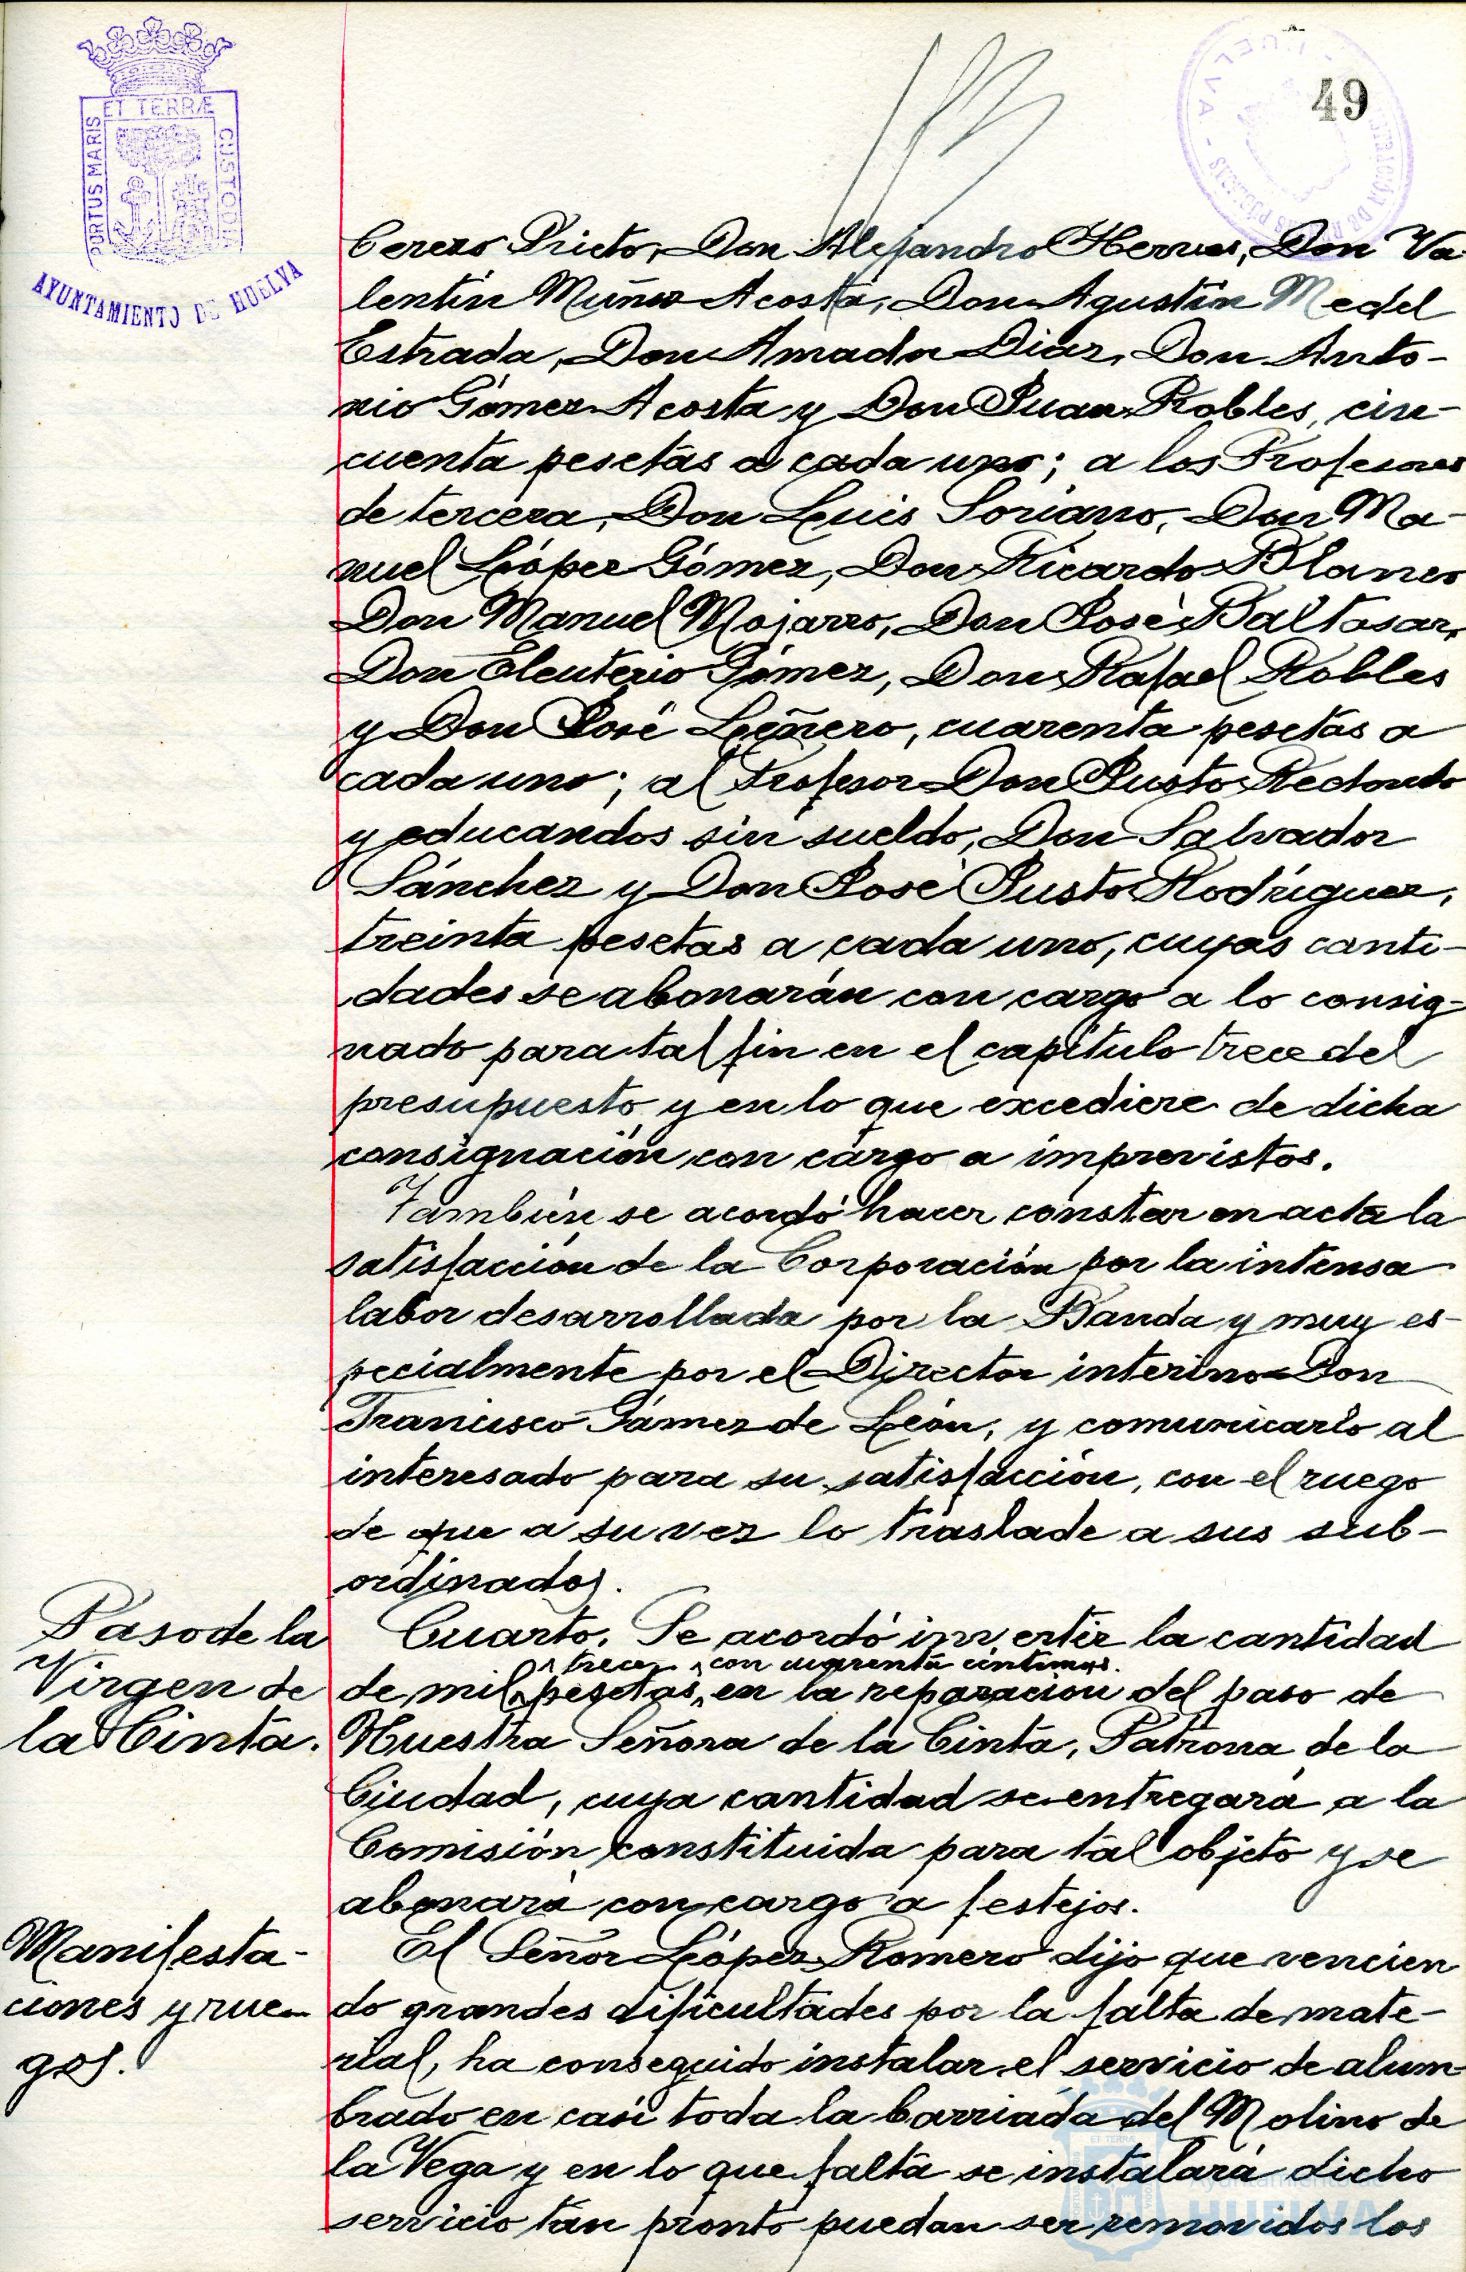 49
ET TERRÆ
PORTUS MARIS
CUSTODIA
AYUNTAMIENTO DE HUELVA
Cerezo Prieto, Don Alejandro Hervas, Don Va-
lentin Muñoz Acosta, Don Agustin Medel
Estrada, Don Amador Diaz, Don Anto-
nio Gómez Acosta y Don Juan Robles, cin-
cuenta pesetas a cada uno; a los Profesores
de tercera, Don Luis Soriano, Don Ma-
nuel López Gómez, Don Ricardo Blanco
Don Manuel Mojarro, Don José Baltasar,
Don Eleuterio Gómez, Don Rafael Robles
y Don José Leñero, cuarenta pesetas a
cada uno; al Profesor Don Justo Redondo
y educandos sin sueldo, Don Salvador
Sánchez y Don José Justo Rodríguez,
treinta pesetas a cada uno, cuyas canti-
dades se abonarán con cargo a lo consig-
nado para tal fin en el capítulo trece del
presupuesto y en lo que excediere de dicha
consignación con cargo a imprevistos.
También se acordó hacer constar en acta la
satisfacción de la Corporación por la intensa
labor desarrollada por la Banda y muy es-
pecialmente por el Director interino Don
Francisco Gámez de León, y comunicarlo al
interesado para su satisfacción, con el ruego
de que a su vez lo traslade a sus sub-
ordinados.
Paso de la
Virgen de
la Cinta.
Cuarto. Se acordó invertir la cantidad
trece con cuarenta céntimos.
de mil pesetas, en la reparación del paso de
Nuestra Señora de la Cinta, Patrona de la
Ciudad, cuya cantidad se entregará a la
Comisión constituida para tal objeto y se
abonará con cargo a festejos.
Manifesta-
ciones y rue-
gos.
El Señor López Romero dijo que vencien
do grandes dificultades por la falta de mate-
rial, ha conseguido instalar el servicio de alum-
brado en casi toda la barriada del Molino de
la Vega y en lo que falta se instalará dicho
servicio tan pronto puedan ser removidos los
Ayuntamiento de
HUELVA